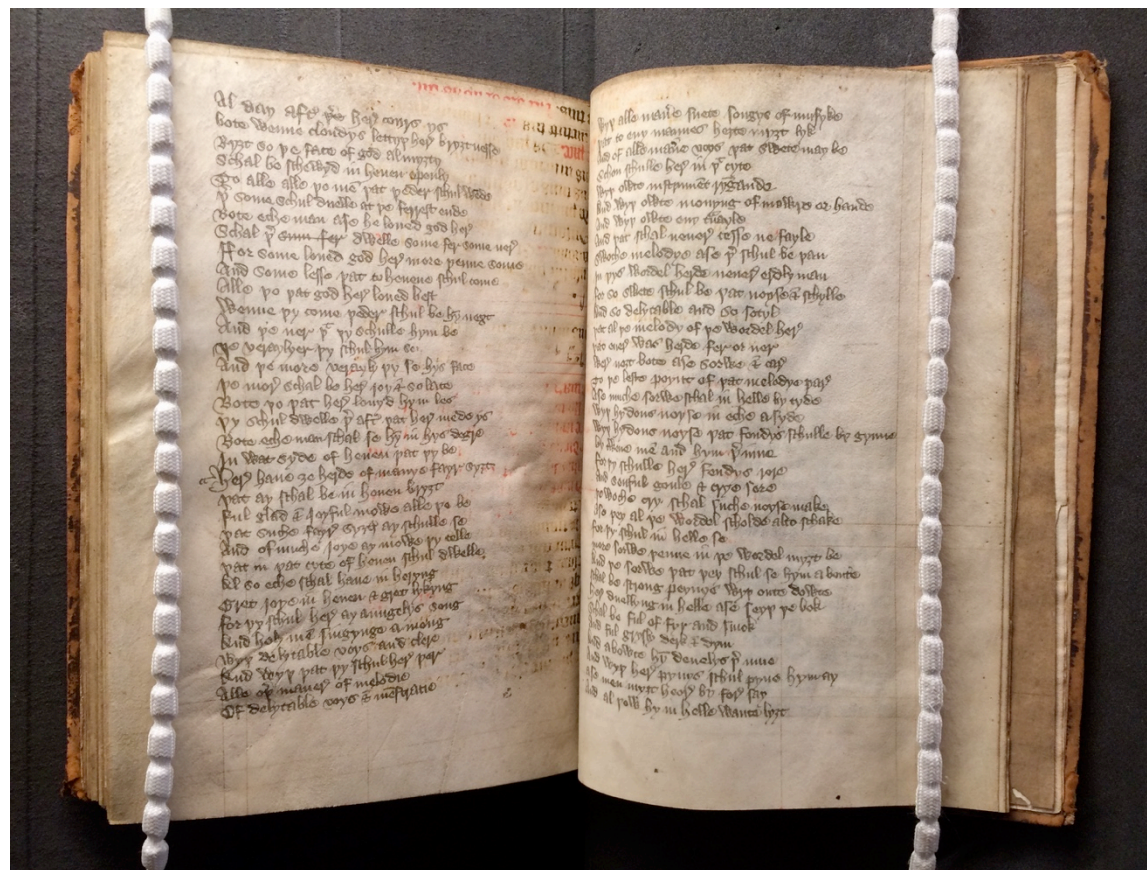 As day aft þe hey conrs ys
bote wenne clondys lettyþ hey bryȝtnesse
Ryȝt so þe face of god almyȝty
Schal be schewyd in heuen oponly
To alle alle þo mē þat þeder schul wēde
þ some schul duelle at þe ferrest ende
Bote eche man ase he loued god her
Schal þ sum fer dwelle some fer some ner
ffor some loued god her more þenne some
And some lesse þat to heuene schul come
Alle þo þat god her loued best
Wenne þy come þeder schul be hȳ next
And þe ner þ þy schulle hym be
þe verayher þy schul hym se
And þe more verayly þy se hys face
þe mor schal be her joy & solace
Bote þo þat her louyd hym les
þy schul dwelle þ aft þat her mede ys
Bote eche man schal se hȳ in hys degre
In wat syde of heuen þat þy be
her haue ȝe herde of manys fayr syȝt
þat ay schal be in heuen bryȝt
Ful glad & joyful mowe alle þo be
þat suche fayr syȝt ay schulle se
And of muche joye ay mowe þy telle
þat in þat cyte of heuen schul dwelle
Al so eche schal haue in heryng
Gret joye in heuen & gret lykyng
for þy schul her ay aungelys song
And holy mē syngynge among
Wyþ delytable voys and clere
And wyþ þat þy schul her þer
Alle oþ maner of melodie
Of delytable voys & mēstracie
Wyþ alle manere swete songys of musyke
þat to eny mannes herte myȝt lyke
And of alle manere voys þat swete may be
Schon schulle her in þ cyte
Wyþ oute instrument ryngande
And wyþ oute mouyng of mowþe or hande
And wyþ oute eny trauayle
And þat schal neuer cesse ne fayle
Swoche melodye ase þ schul be þan
In þys wordel herde neuer erdly man
for so swete schul be þat noyse & schylle
And so delytable and so sotyl
þat al þe melody of þe wordel her
þat euer was herde fer or ner
Wer noȝt bote ase sorwe & car
To þe leste poynt of þat melodye þar
Also muche sorwe schal in helle by tyde
Wyþ hydous noyse in eche a syde
Wyþ hydous noyse þat fendys schulle by gynne
by twene me and hym þ inne
for þy schulle her fendys rore
And sunful goule & crye sore
swoche cry schal suche noyse make
Also þey al þe wordel scholde also schake
for þy schul in helle se
more sorwe þenne in þe wordel myȝt be
And þe sorwe þat þey schul se hym aboute
Schal be strong peynys wyþ oute doute
her duellyng in helle ase seyþ þe bok
Schal be ful of fyr and smok
And ful grysly derk & dym
And aboute hȳ deuelys þ inne
And wyþ her pynus schul pyne hym ay
Also men myȝt heer by for say
And al þow hy in helle wante lyȝt